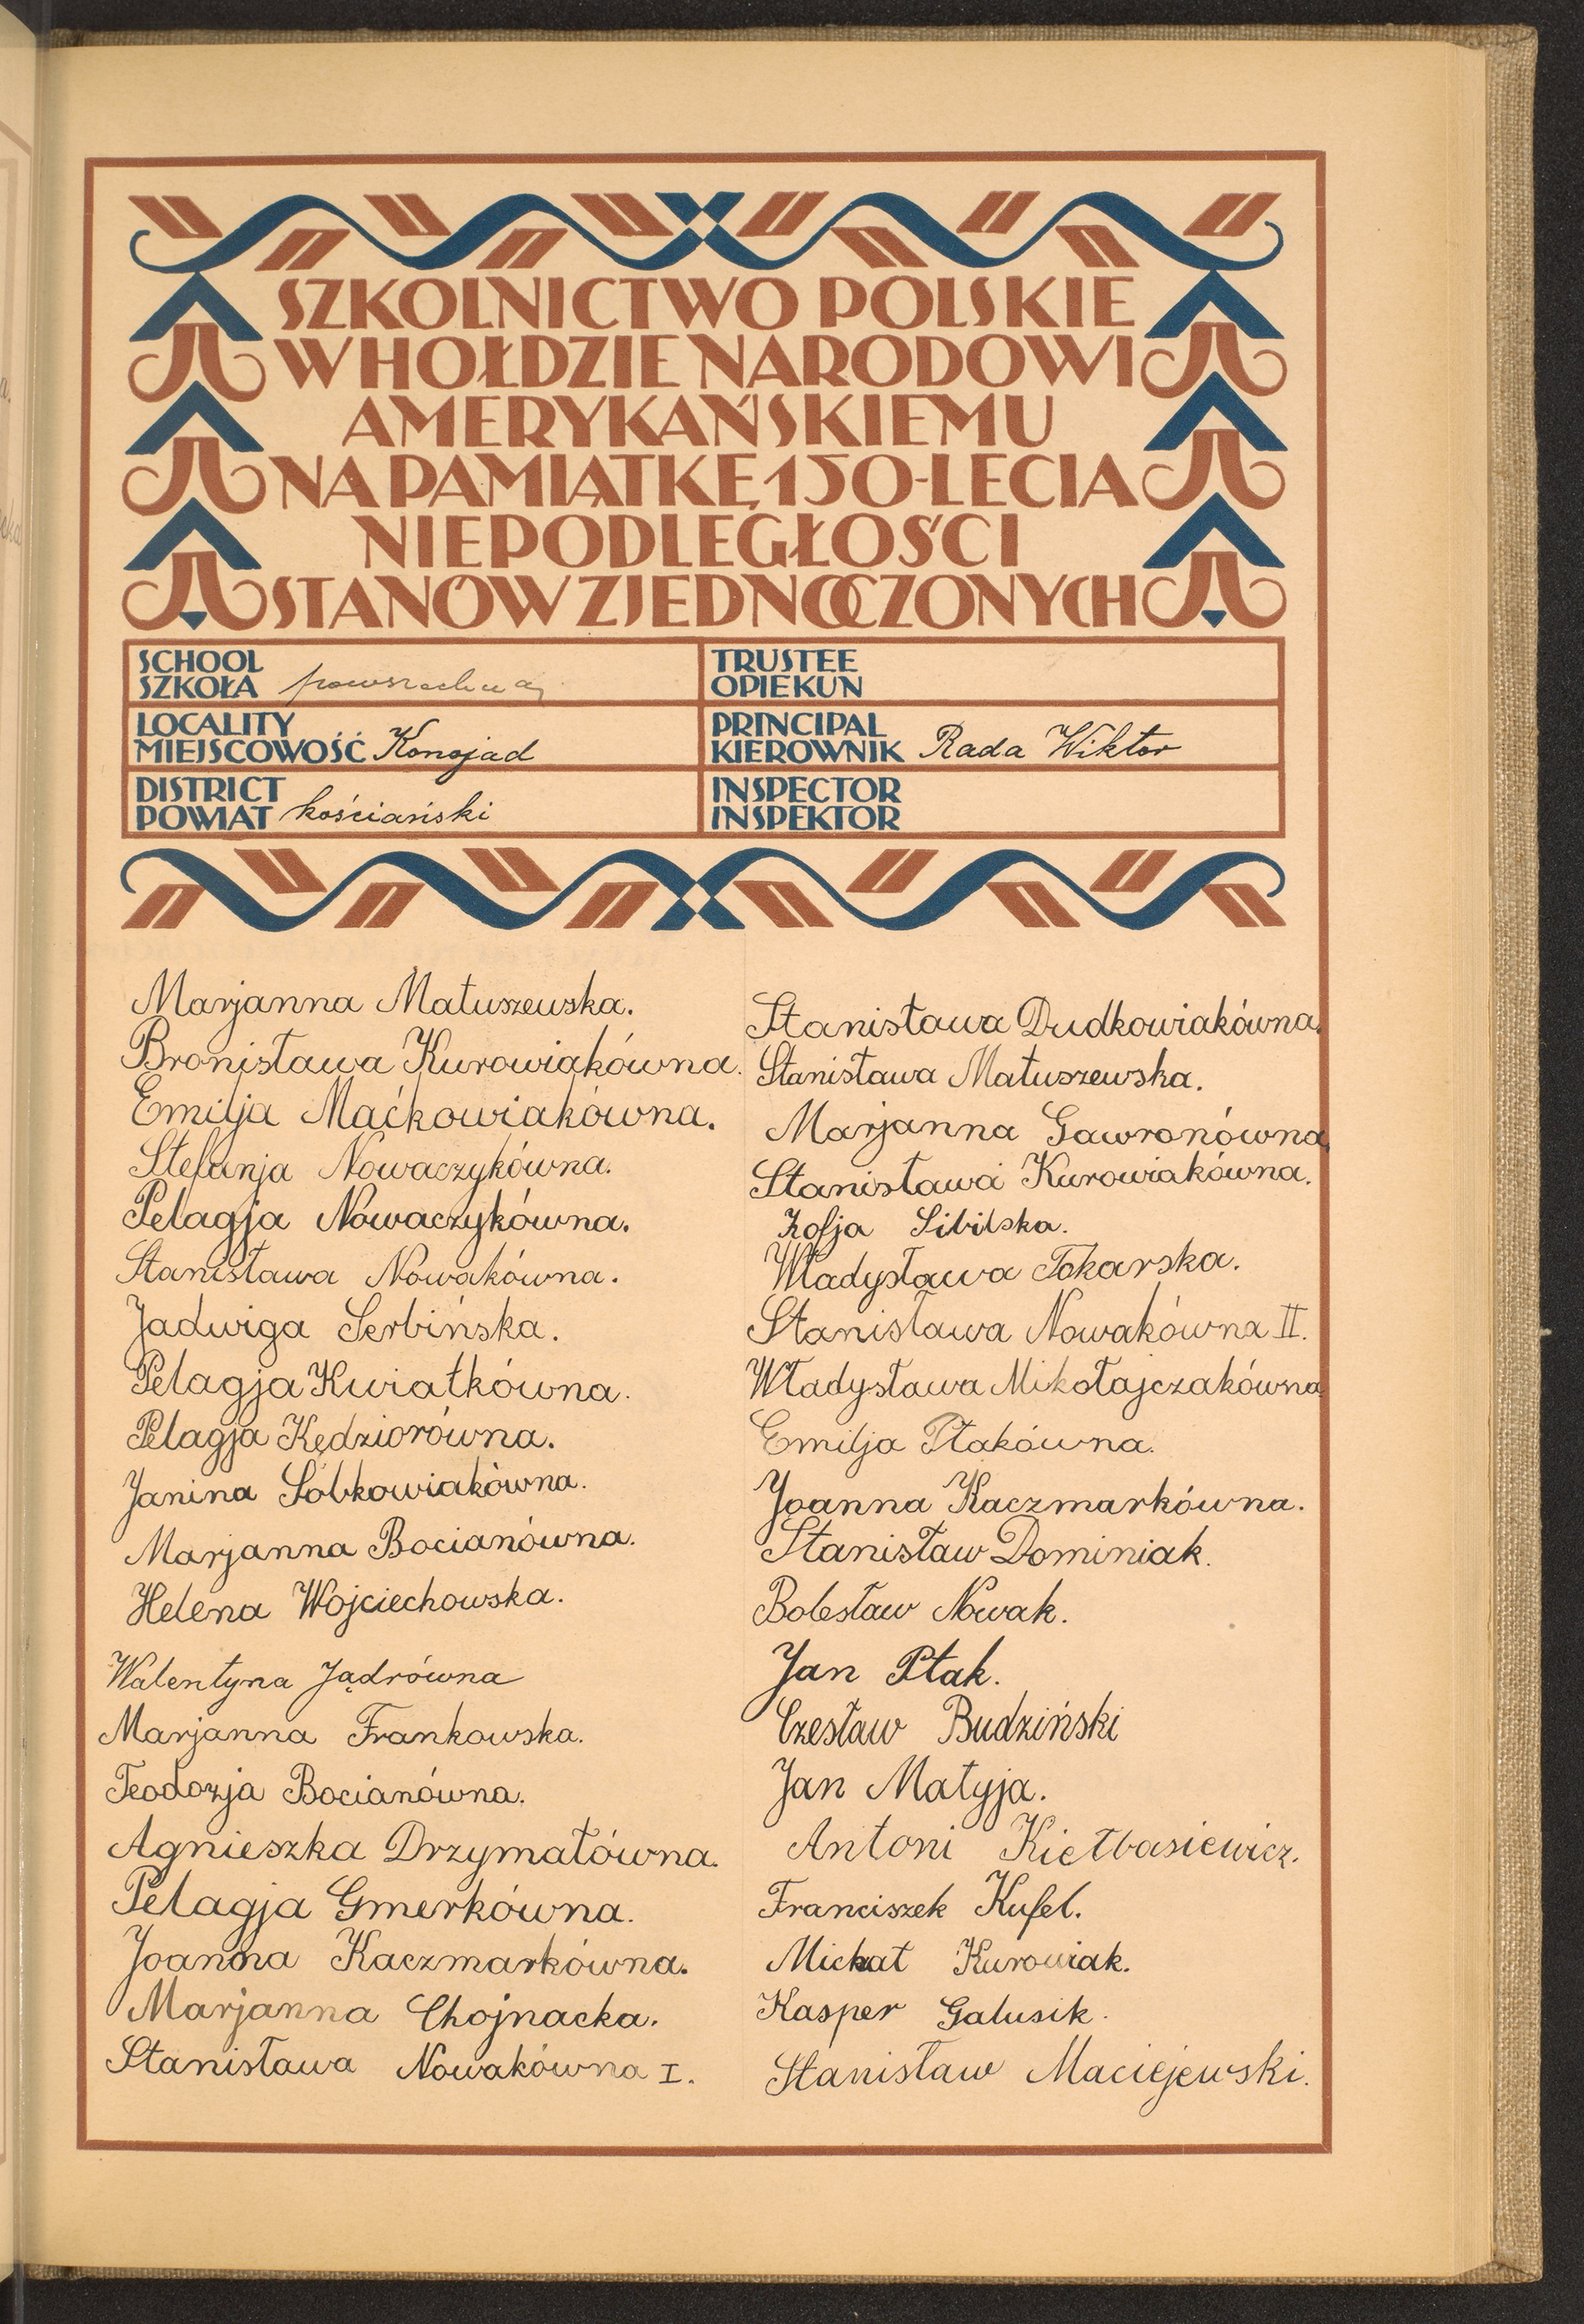 SZKOLNICTWO POLSKIE
W HOŁDZIE NARODOWI
AMERYKAŃSKIEMU
NA PAMIĄTKĘ 150-LECIA
NIEPODLEGŁOŚCI
STANÓW ZJEDNOCZONYCH
SCHOOL
SZKOŁA powszechna
TRUSTEE
OPIEKUN
LOCALITY
MIEJSCOWOŚĆ Konojad
PRINCIPAL
KIEROWNIK Rada Wiktor
DISTRICT
POWIAT kościański
INSPECTOR
INSPEKTOR
Marjanna Matuszewska.
Bronisława Kurowiakówna.
Emilja Maćkowiakówna.
Stefanja Nowaczykówna.
Pelagja Nowaczykówna.
Stanisława Nowakówna.
Jadwiga Serbińska.
Pelagja Kwiatkówna.
Pelagja Kędziorówna.
Janina Sóbkowiakówna.
Marjanna Bocianówna.
Helena Wojciechowska.
Walentyna Jądrówna
Marjanna Frankowska.
Teodozja Bocianówna.
Agnieszka Drzymałówna.
Pelagja Gmerkówna.
Joanna Kaczmarkówna.
Marjanna Chojnacka.
Stanisława Nowakówna I.
Stanisława Dudkowiakówna.
Stanisława Matuszewska.
Marjanna Gawronówna
Stanisława Kurowiakówna.
Zofja Sibilska.
Władysława Tokarska.
Stanisława Nowakówna II.
Władysława Mikołajczakówna.
Emilja Ptakówna.
Joanna Kaczmarkówna.
Stanisław Dominiak.
Bolesław Nowak.
Jan Ptak.
Czesław Budziński
Jan Matyja.
Antoni Kiełbasiewicz.
Franciszek Kufel.
Michał Kurowiak.
Kasper Galusik.
Stanisław Maciejewski.